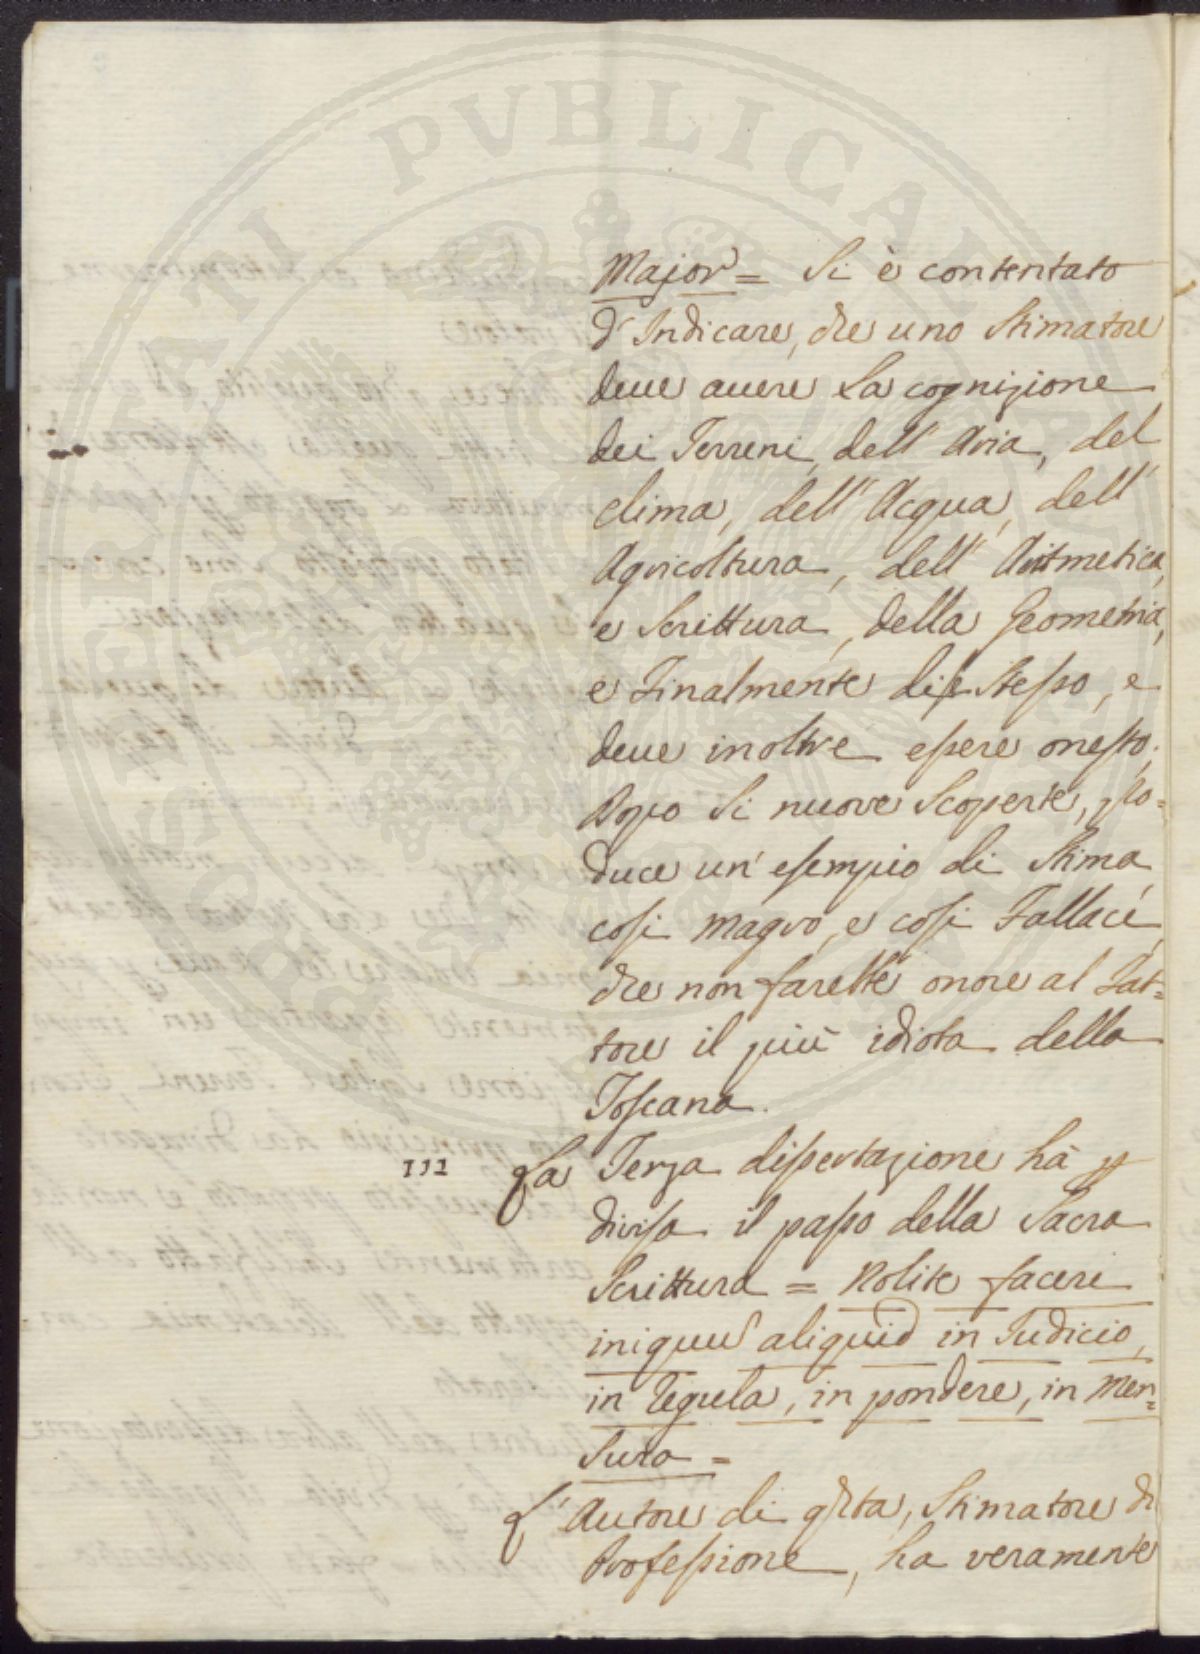 PROSPERITATI PVBLICAE AVGENDAE
Major = Si è contentato
d'Indicare, che uno Stimatore
deue auere la cognizione
dei Terreni, dell'Aria, del
clima, dell'Acqua, dell'
Agricoltura, dell'Aritmetica,
e Scrittura, della Geometria,
e Finalmente di se Stesso, e
deue inoltre essere onesto;
Dopo Si nuove Scoperte, pro=
duce un'esempio di Stima
cosi magro, e cosi Fallace,
che non farebbe onore al Fat=
tore il più idiota della
Toscana.
III La Terza dissertazione hà p
divisa il passo della Sacra
Scrittura = Nolite facere
iniquu aliquid in Iudicio,
in Regula, in pondere, in Men=
sura =
L'Autore di qsta, Stimatore di
Professione, ha veramente